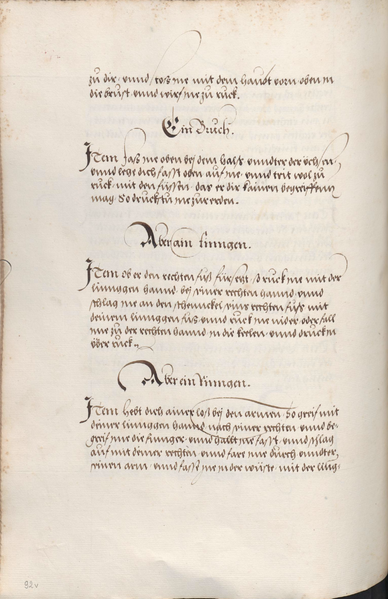 zu dir, vnnd stos jne mit dem haubt vorn oben in
die brust vnnd wirf jne zu ruck.
Ein Bruch.
Item fass jne oben bej dem halss vnndter der vchsen,
vnnd lege dich fasst oben auf jne, vnnd trit wol zu
ruck mit den füssen, das er dir kainen begreiffenn
mag, So druckstu jne zur erden.
Aber ain Ringen.
Item ob er den rechten fuß für setzt, so ruck jne mit der
linnggen hannd, bej seiner rechten hannd, vnnd
schlag jne an den schennckel seins rechten fuß mit
deinem linnggen fus, vnnd ruck jne nider oder fall
jne zu der rechten hannd in die keelen, vnnd druck jn
vber ruck.
Aber ein Ringen.
Item hebt dich ainer los bej den armen, So greif mit
deiner linnggen hannd nach seiner rechten, vnnd be-
greif jne die finnger, vnnd hallt jne fasst, vnnd schlag
auf mit deiner rechten, vnnd fare jne durch vnndter,
seinen arm, vnnd fasse jne in der mit der ling-
92v